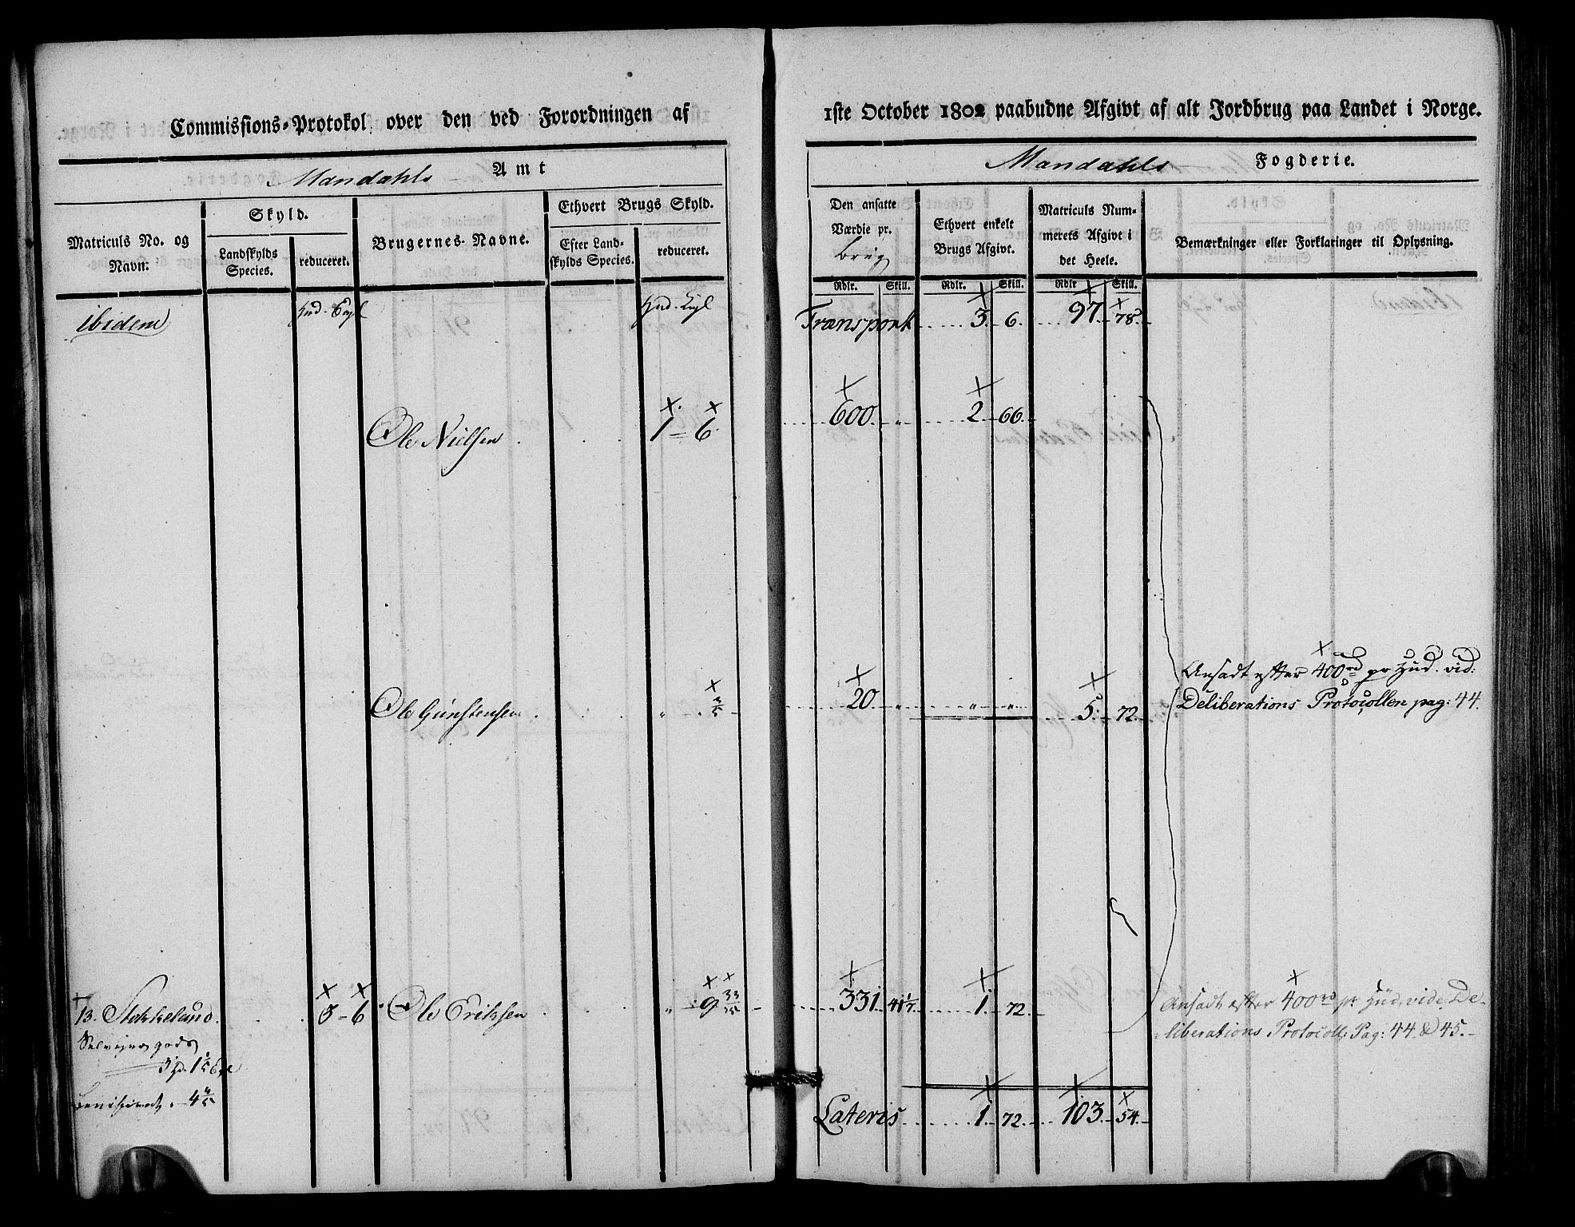 Commissions-Protokol over den ved Forordningen af 1ste October 1802 paabudne Afgivt af alt Jordbrug paa Landet i Norge.
Mandahls Amt
Mandahls Fogderie.
Matriculs No. og Navn:
Skyld.
Landskylds Species.
reduceret.
Brugernes Navne.
Ethvert Brugs Skyld.
Efter Landskylds Species.
reduceret.
Den ansatte Værdie pr. brug
Ethvert enkelt Brugs Afgivt.
Matriculs Nummerets Afgivt i det Heele.
Bemærkninger eller Forklaringer til Oplysning.
Rdlr. Skill. Rdlr. Skill. Rdlr Skill.
ibidem Hud. Hud. Transport 3. 6. 97. 78.
Ole Nielsen 1 = 6. 600. „ 2. 66.
Ansadt efter 400 rd pr Hud. vid:
Ole Gunstensen „ 20. „ „ „ 5. 72. Deliberations Protocollen pag: 44.
13. Stekkeland. 3 = 6 Ole Erichsen „ 9 33/25 331. 41½ 1. 72. Ansadt efter 400 rd pr Hud vide De-
liberations Protocoll Pag: 44 & 45.
Selveyer gods
Lateris 1. 72. 103. 54.